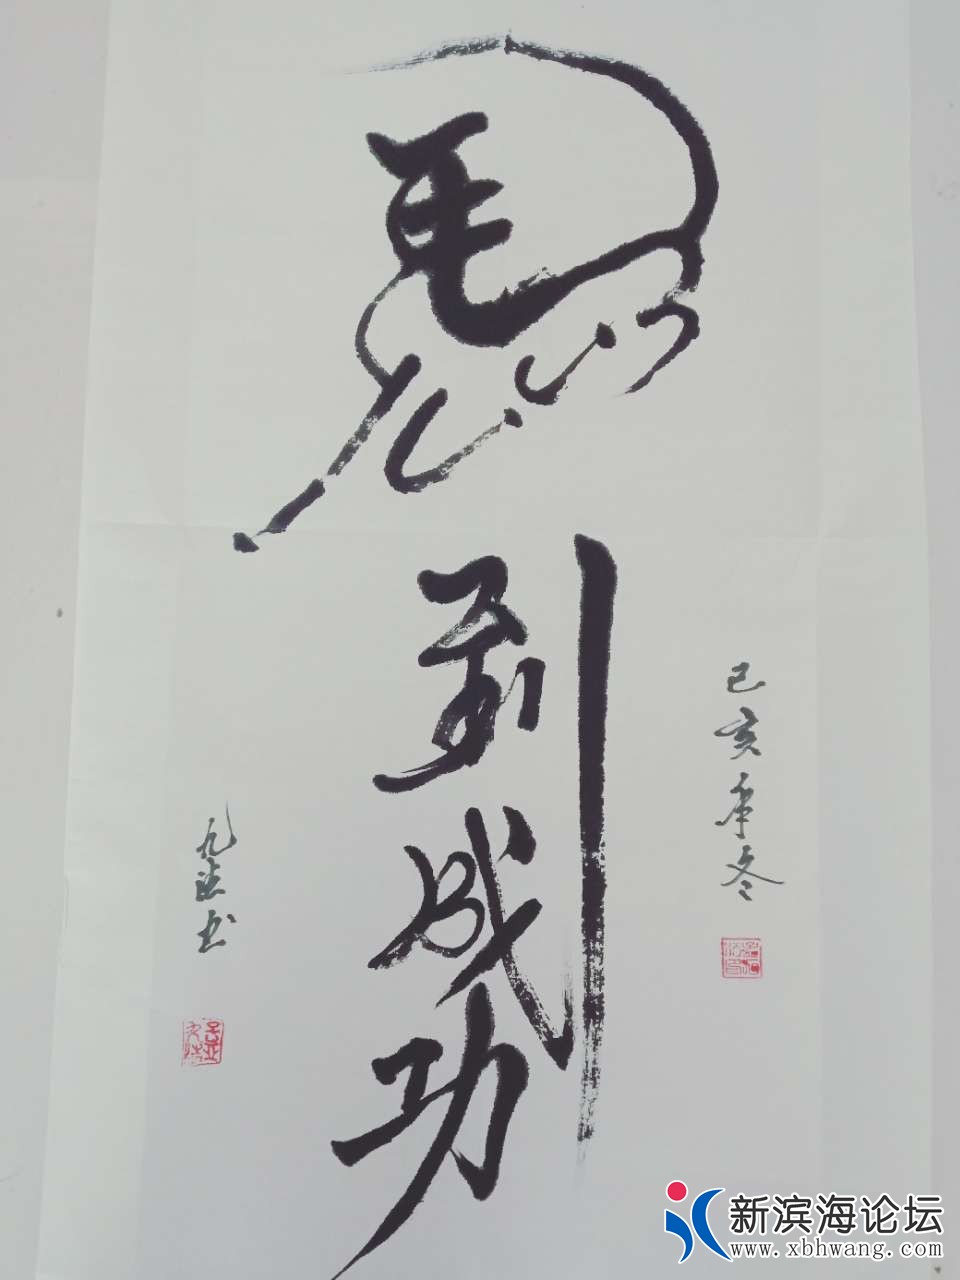 馬到成功
己亥年冬
九法书
新滨海论坛
www.xbhwang.com